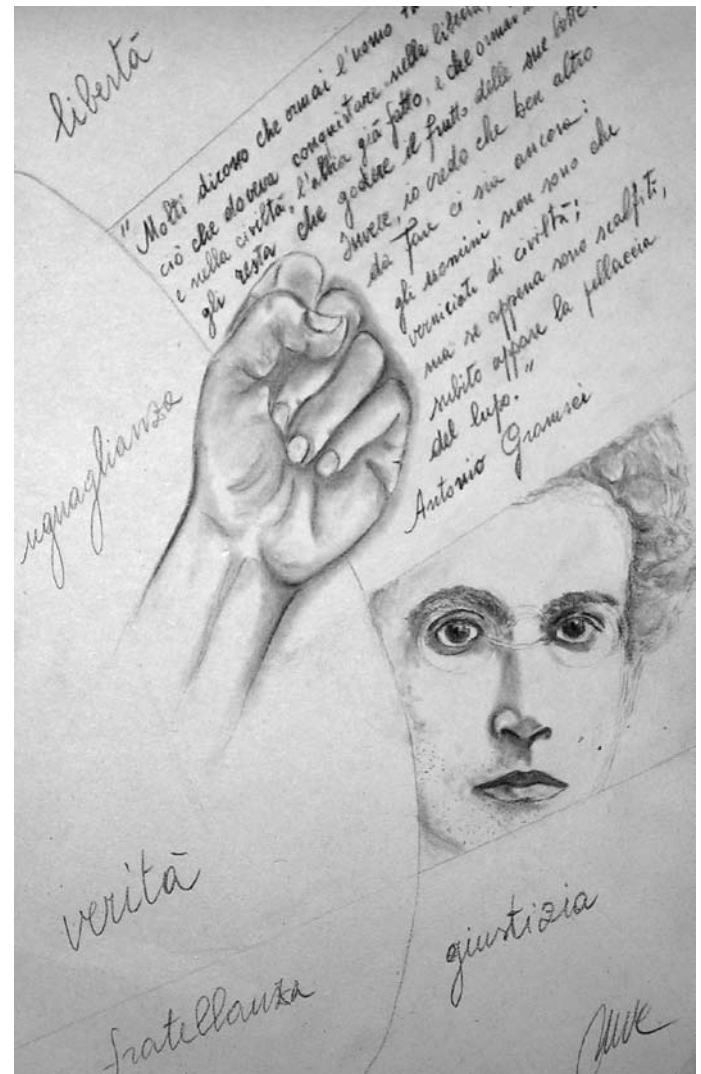 libertà
"Molti dicono che ormai l'uomo
ciò che doveva conquistare nella libertà,
e nella civiltà, l'abbia già fatto, e che ormai
gli resta che godere il frutto delle sue lotte.
Invece, io credo che ben altro
da fare ci sia ancora:
gli uomini non sono che
verniciati di civiltà;
ma se appena sono scalfiti,
subito appare la pellaccia
del lupo."
Antonio Gramsci
uguaglianza
verità
giustizia
fratellanza